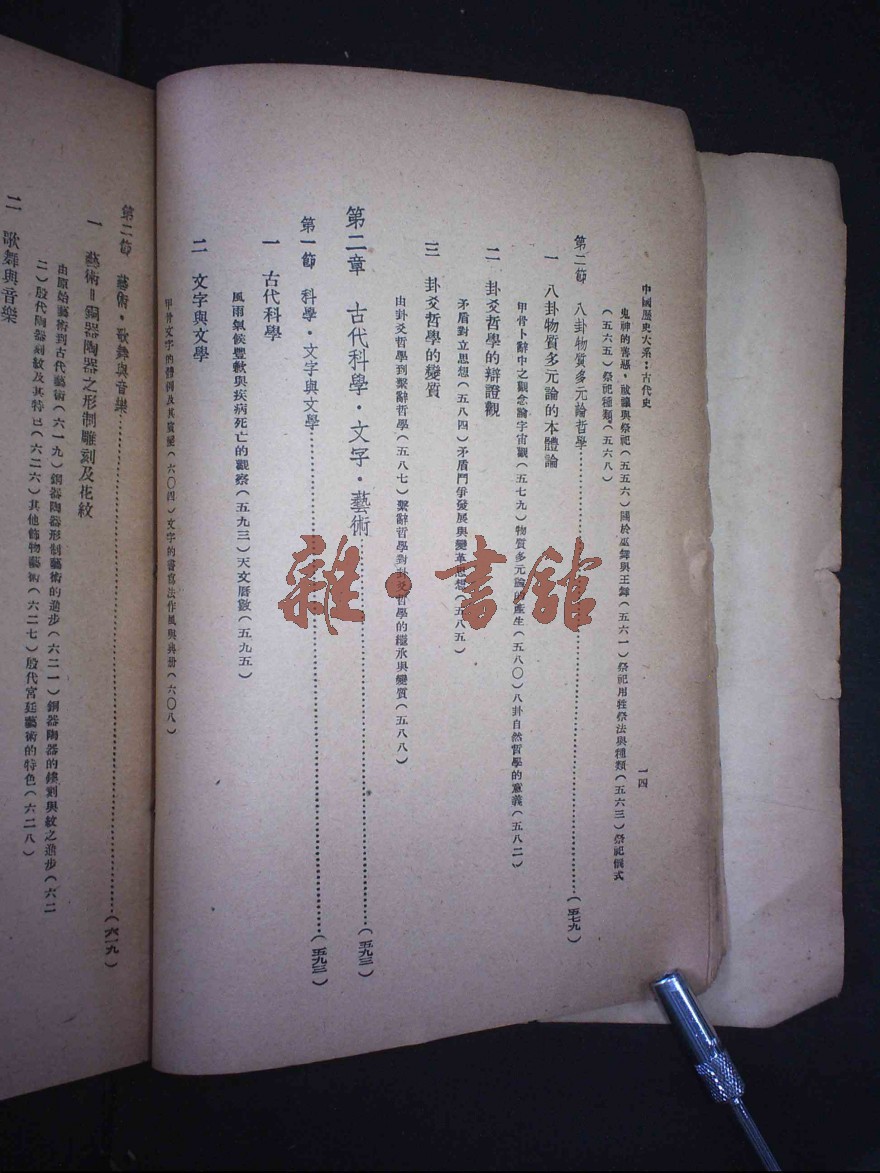 中國歷史大系：古代史
一四
鬼神的善惡，祓禳與祭祀（五五六）關於巫舞與王舞（五六一）祭祀用牲祭法與種類（五六三）祭祀儀式
（五六五）祭祀種類（五六八）
第二節 八卦物質多元論哲學（五七九）
一 八卦物質多元論的本體論
甲骨卜辭中之觀念論宇宙觀（五七九）物質多元論的產生（五八〇）八卦自然哲學的意義（五八二）
二 卦爻哲學的辯證觀
矛盾對立思想（五八四）矛盾鬥爭發展與變革思想（五八五）
三 卦爻哲學的變質
由卦爻哲學到繫辭哲學（五八七）繫辭哲學對卦爻哲學的繼承與變質（五八八）
第二章 古代科學・文字・藝術（五九三）
第一節 科學・文字與文學（五九三）
一 古代科學
風雨氣候豐歉與疾病死亡的觀察（五九三）天文曆數（五九五）
二 文字與文學
甲骨文字的體例及其演變（六〇四）文字的書寫法作風與典册（六〇八）
第二節 藝術・歌舞與音樂（六一九）
一 藝術＝銅器陶器之形制雕刻及花紋
由原始藝術到古代藝術（六一九）銅器陶器形制藝術的進步（六二一）銅器陶器的鏤刻與紋之進步（六二
二）殷代陶器刻紋及其特色（六二六）其他飾物藝術（六二七）殷代宮廷藝術的特色（六二八）
二 歌舞與音樂
雜・書館